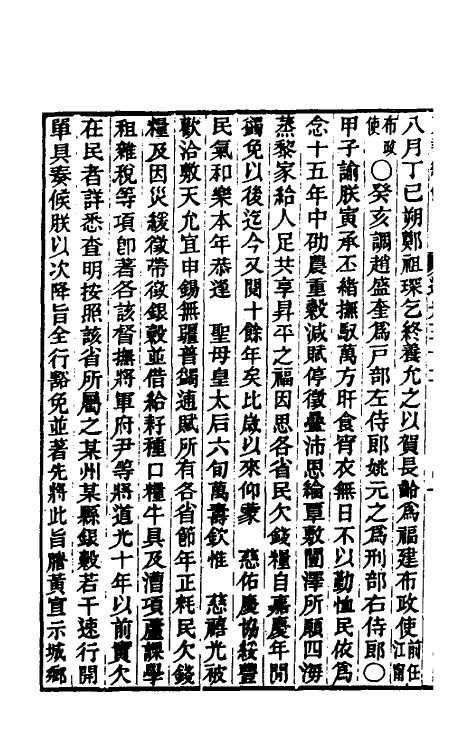 八月丁巳朔鄭祖琛乞終養允之以賀長齡爲福建布政使前任江甯
布政使○癸亥調趙盛奎爲戶部左侍郎姚元之爲刑部右侍郎○
甲子諭朕寅承丕緒撫馭萬方旰食宵衣無日不以勤恤民依爲
念十五年中劭農重穀減賦停徵疊沛恩綸覃敷闓澤所願四海
蒸黎家給人足共享昇平之福因思各省民欠錢糧自嘉慶年間
蠲免以後迄今又閱十餘年矣比歲以來仰蒙　慈佑慶協綏豐
民氣和樂本年恭逢　聖母皇太后六旬萬壽欽惟　慈禧光被
歡洽敷天允宜申錫無疆普蠲逋賦所有各省節年正耗民欠錢
糧及因災緩徵帶徵銀穀並借給籽種口糧牛具及漕項蘆課學
租雜稅等項卽著各該督撫將軍府尹等將道光十年以前實欠
在民者詳悉查明按照該省所屬之某州某縣銀穀若干速行開
單具奏候朕以次降旨全行豁免並著先將此旨謄黃宣示城鄉